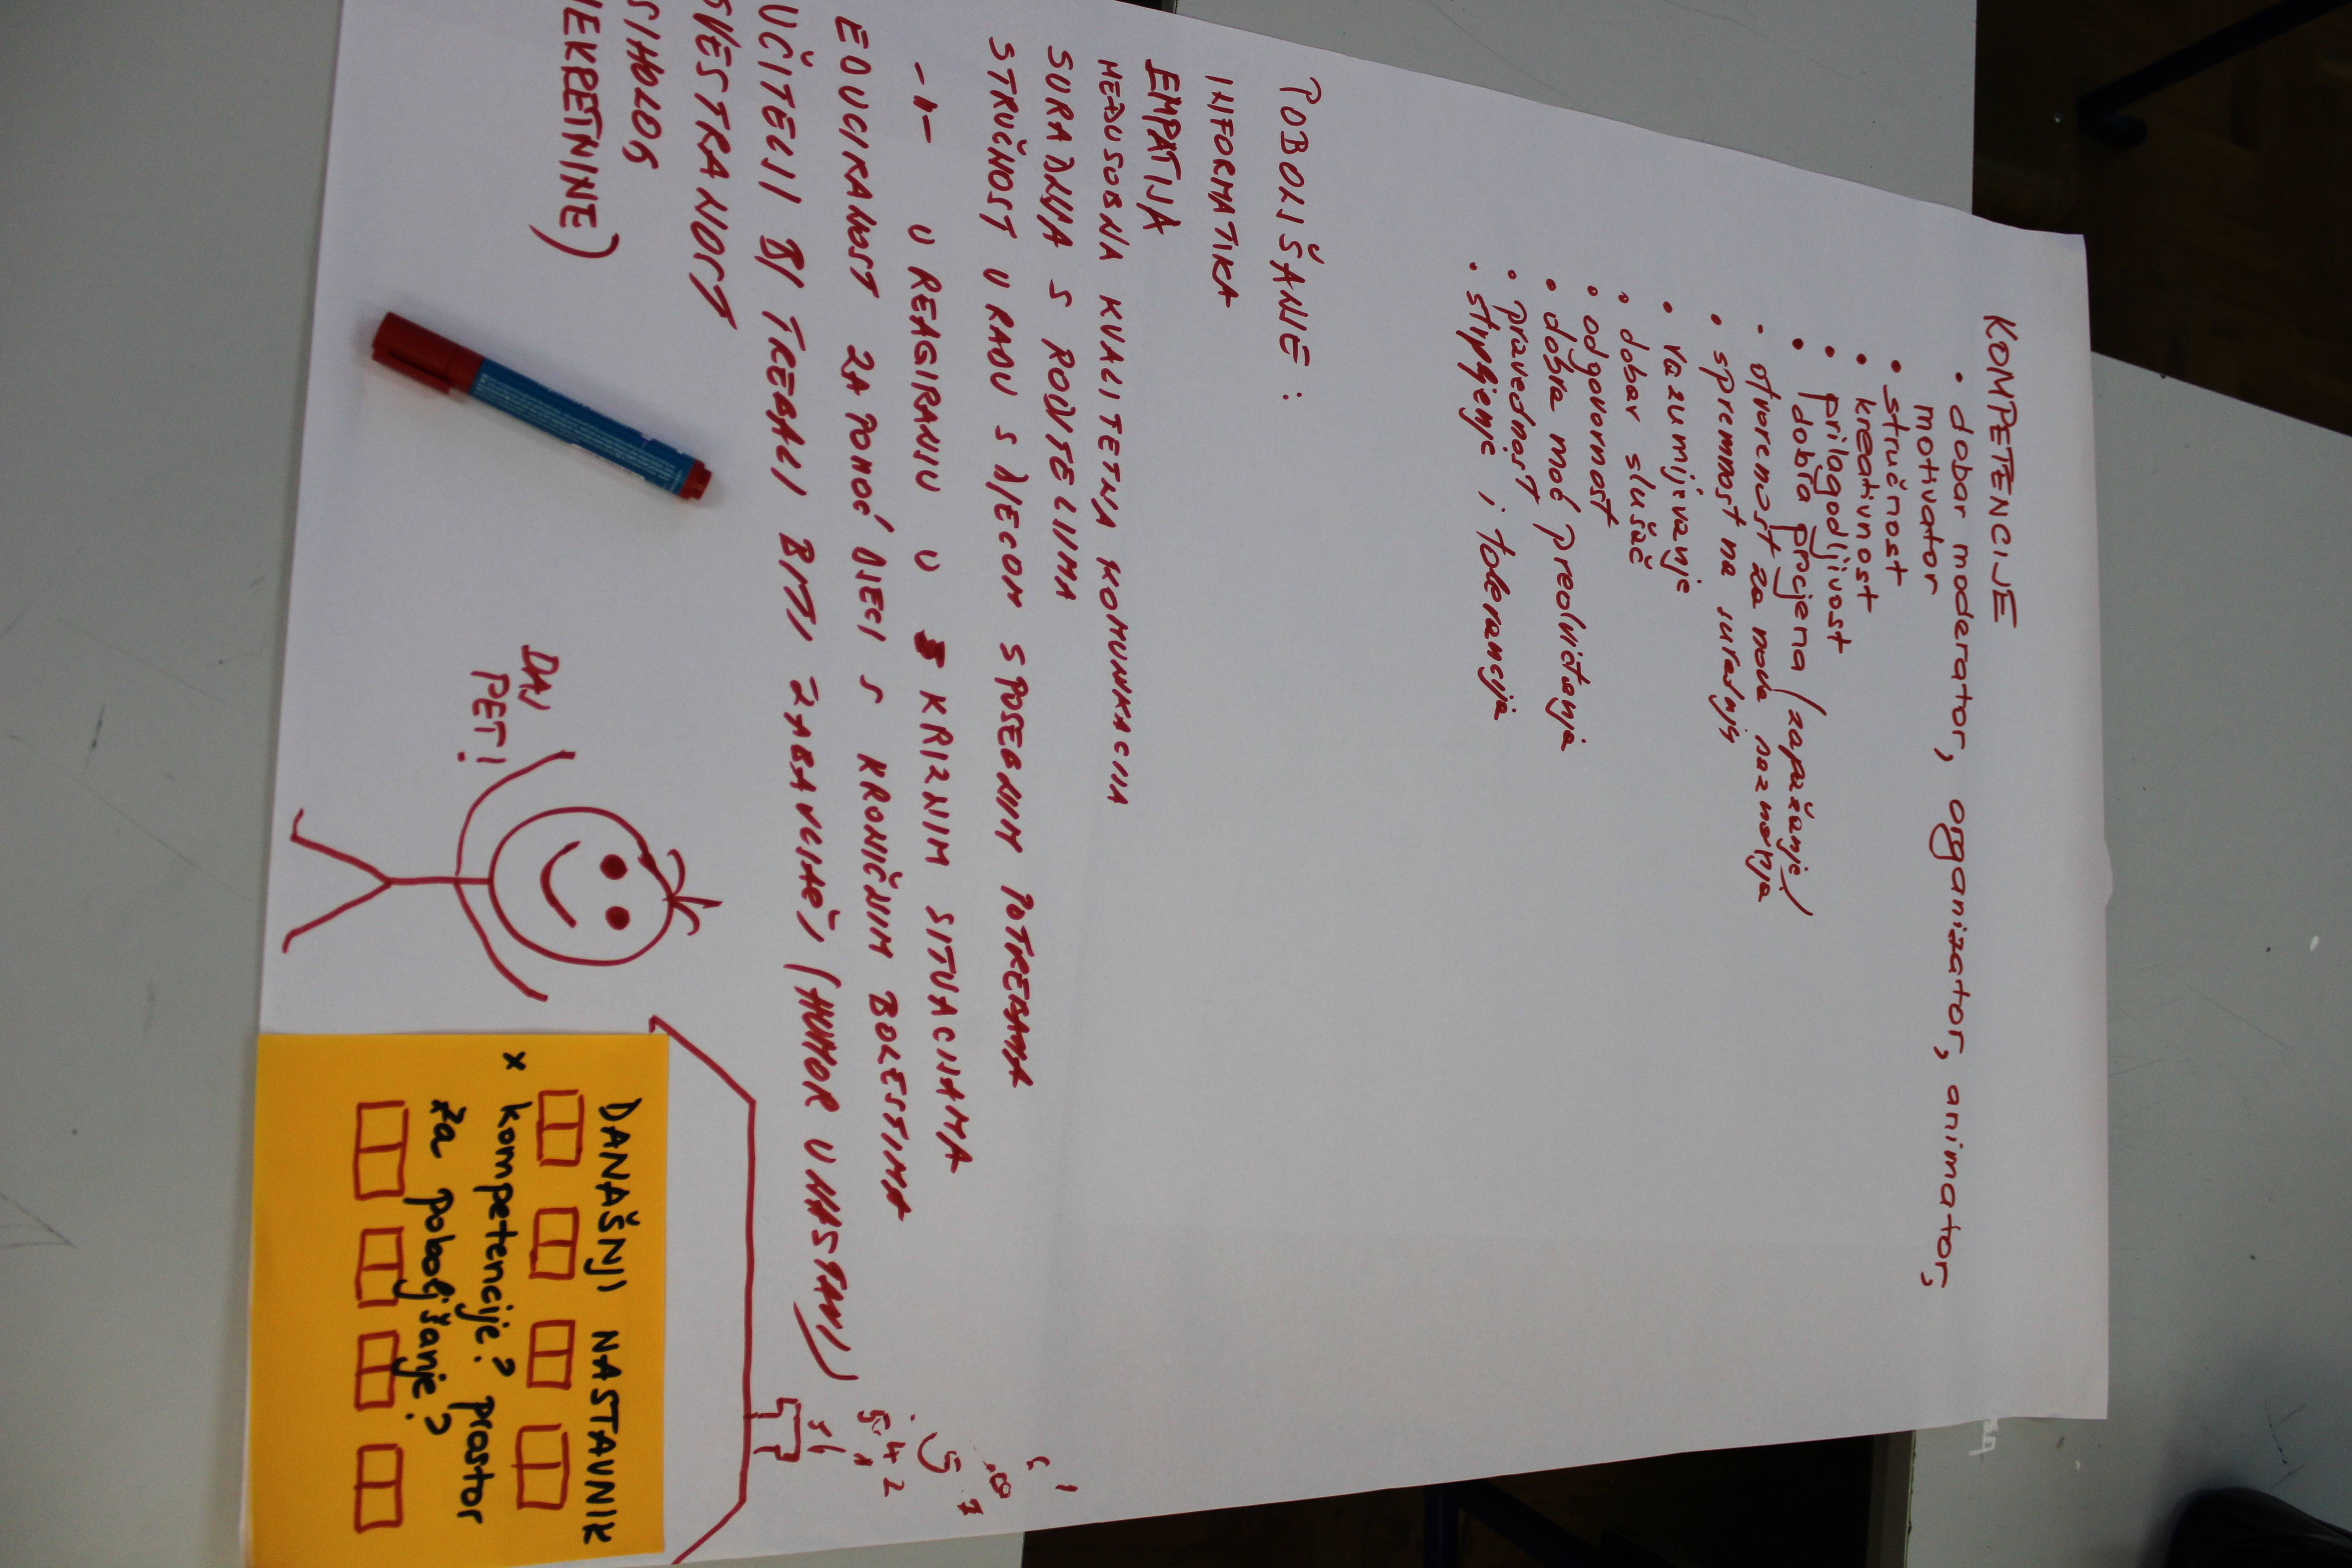 KOMPETENCIJE
• dobar moderator, organizator, animator,
motivator
• stručnost
• kreativnost
• prilagodljivost
• dobra procjena (zapažanje)
• otvorenost za nova saznanja
• spremnost na suradnju
• razumijevanje
• dobar slušač
• odgovornost
• dobra moć predviđanja
• pravednost
• strpljenje i tolerancija
POBOLJŠANJE:
INFORMATIKA
EMPATIJA
MEĐUSOBNA KVALITETNA KOMUNIKACIJA
SURADNJA S RODITELJIMA
STRUČNOST U RADU S DJECOM S POSEBNIM POTREBAMA
-"- U REAGIRANJU U KRIZNIM SITUACIJAMA
EDUCIRANOST ZA POMOĆ DJECI S KRONIČNIM BOLESTIMA
UČITELJI BI TREBALI BITI ZABAVLJAČI (HUMOR U NASTAVI)
SVESTRANOST
SIHOLOG
IEKRETNINE)
DAJ
PET!
5 4 2
5
8
7
1
DANAŠNJI NASTAVNIK
x kompetencije? prostor
za poboljšanje?